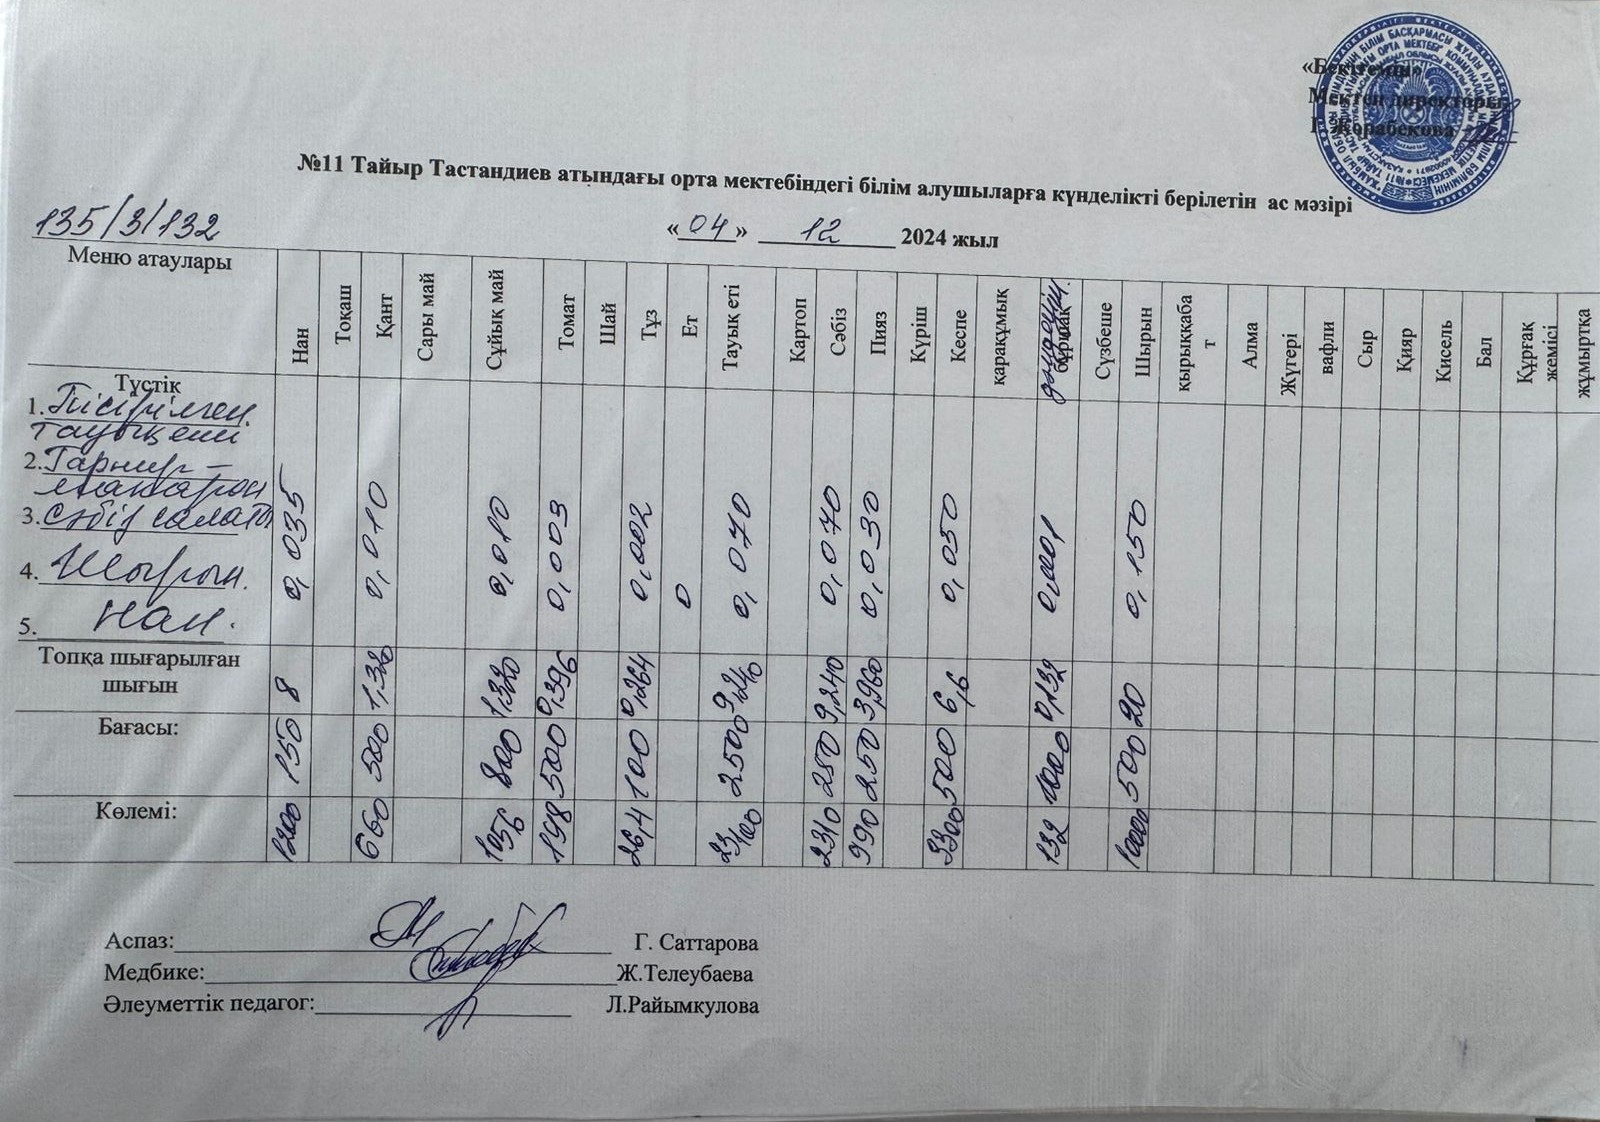 «Бекітемін»
Мектеп директоры
Г. Жорабекова
№11 Тайыр Тастандиев атындағы орта мектебіндегі білім алушыларға күнделікті берілетін ас мәзірі
135/3/132
«04» 12 2024 жыл
Меню атаулары Нан Тоқаш Қант Сары май Сұйық май Томат Шай Тұз Ет Тауық еті Картоп Сәбіз Пияз Күріш Кеспе қарақұмық бұршақ Сүзбеше Шырын қырыққабат Алма Жүгері вафли Сыр Қияр Кисель Бал Құрғақ жемісі жұмыртқа
Түстік
1. Пісірілген
тауық еті
2. Гарнир –
макарон
3. Сәбіз салаты
4. Шырын.
5. Нан.
0,035 0,010 0,010 0,003 0,002 0 0,070 0,070 0,030 0,050 0,001 0,150
Топқа шығарылған шығын 8 1,320 1,320 0,396 0,264 9,240 9,240 3,960 6,6 0,132 20
Бағасы: 150 500 800 500 100 2500 250 250 500 1000 500
Көлемі: 1200 660 1056 198 26,4 23,100 2310 990 3300 132 10000
Аспаз: Г. Саттарова
Медбике: Ж.Телеубаева
Әлеуметтік педагог: Л.Райымкулова